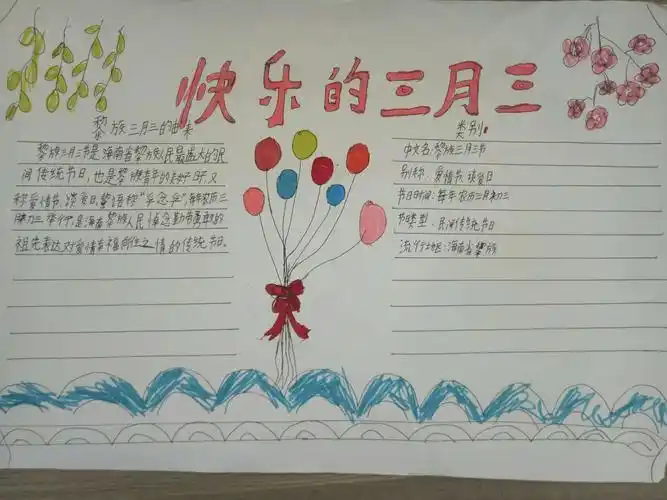 快乐的三月三
黎族三月三的由来
黎族三月三节是海南省黎族人民最盛大的民
间传统节日,也是黎族青年的美好时,又
称爱情节、谈爱日,黎语称"孚念孚",每年农历三
月初三举行,是海南黎族人民悼念勤劳勇敢的
祖先表达对爱情幸福向往之情的传统节日。
类别:
中文名:黎族三月三节
别称:爱情节 谈爱日
节日时间:每年农历三月初三
节类型:民间传统节日
流行地区:海南省黎族